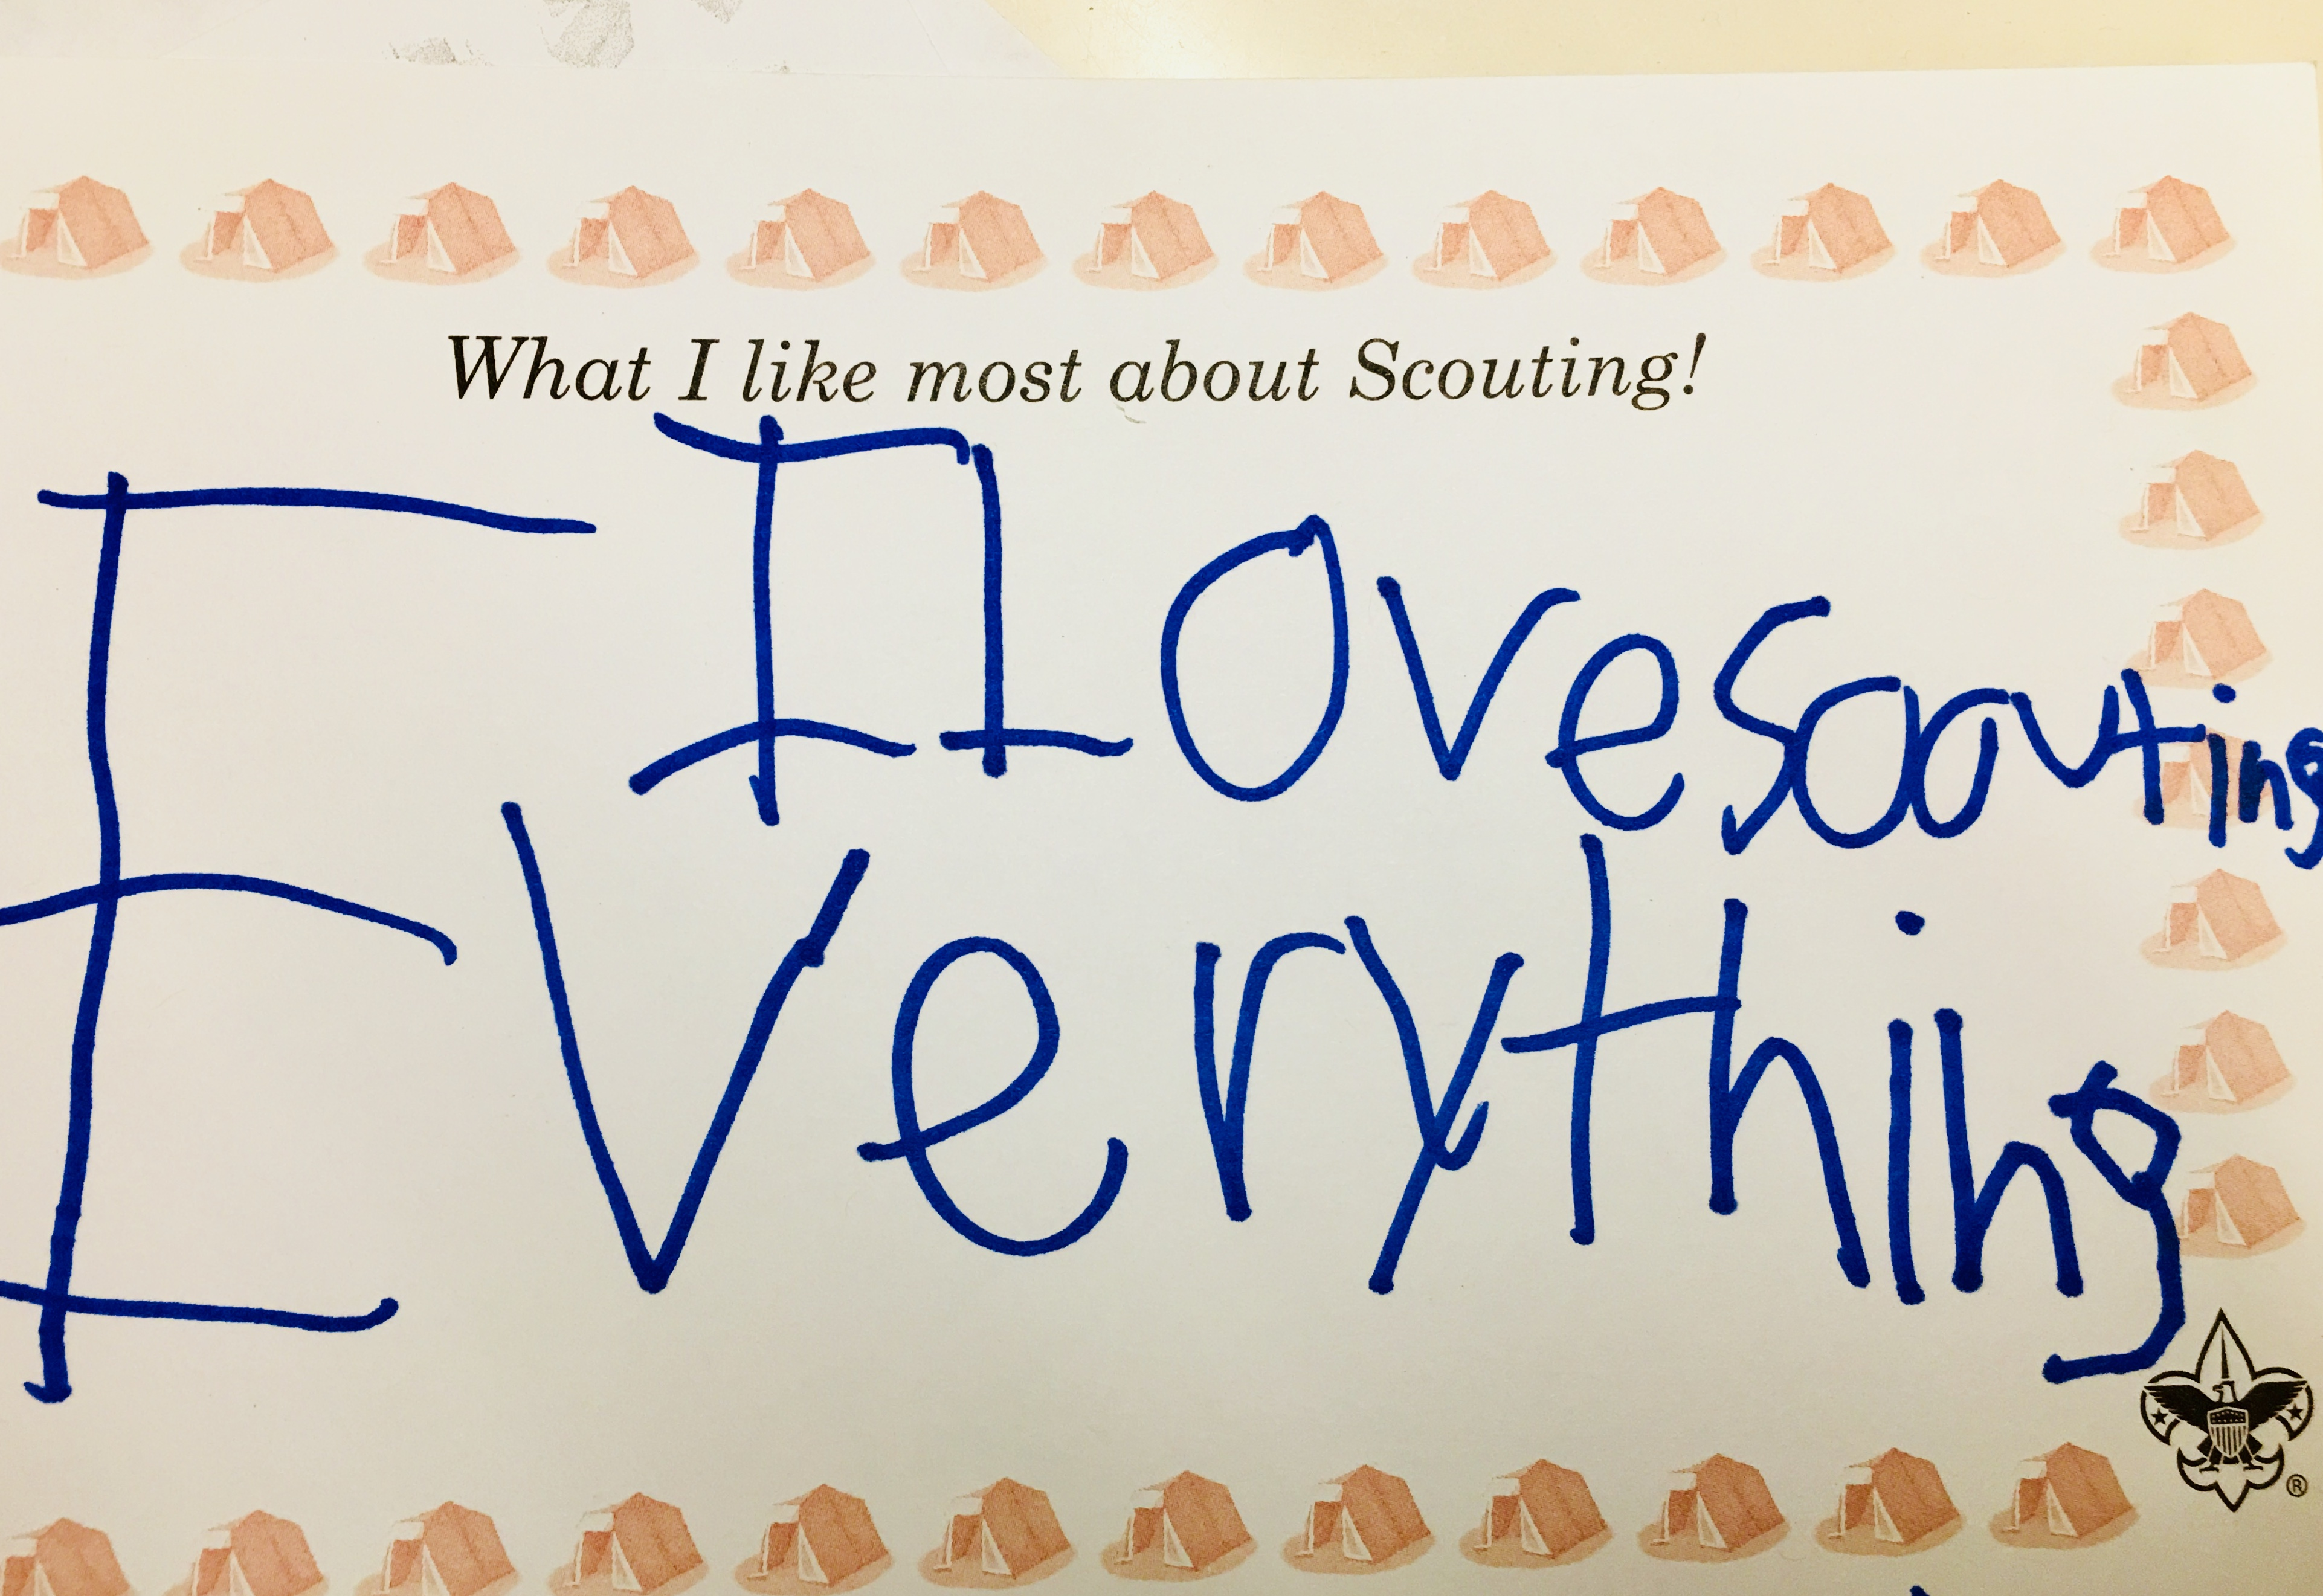 What I like most about Scouting!
I love scouting
Everything
®